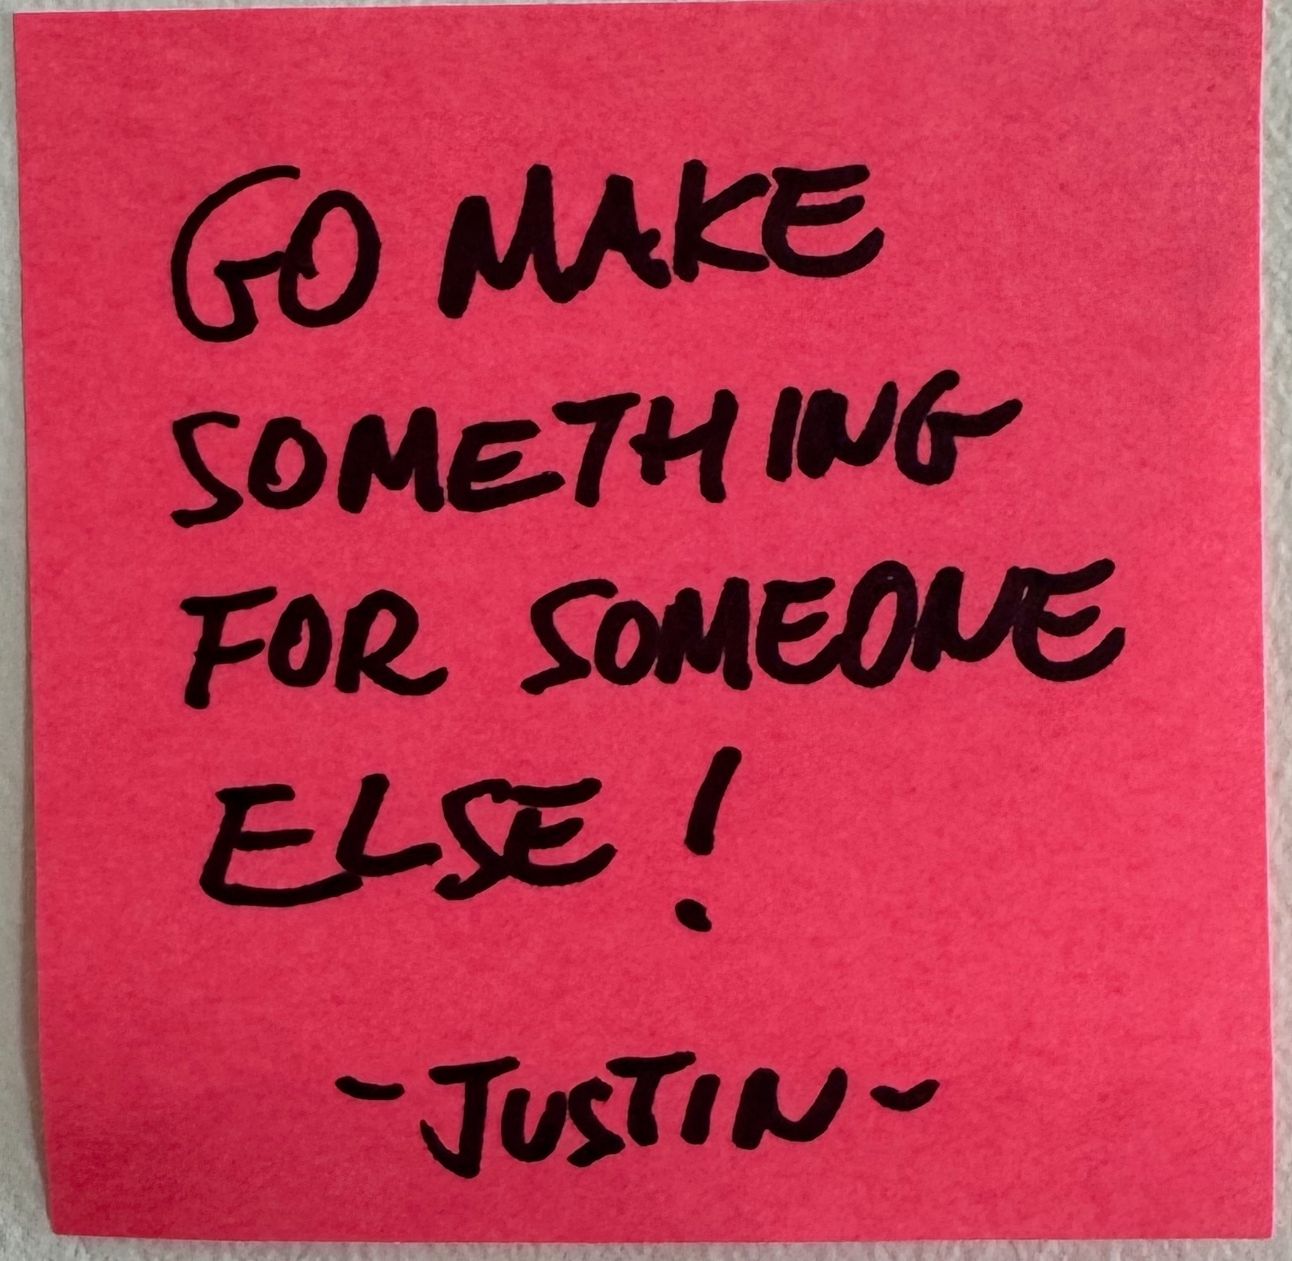 GO MAKE
SOMETHING
FOR SOMEONE
ELSE!
-JUSTIN-